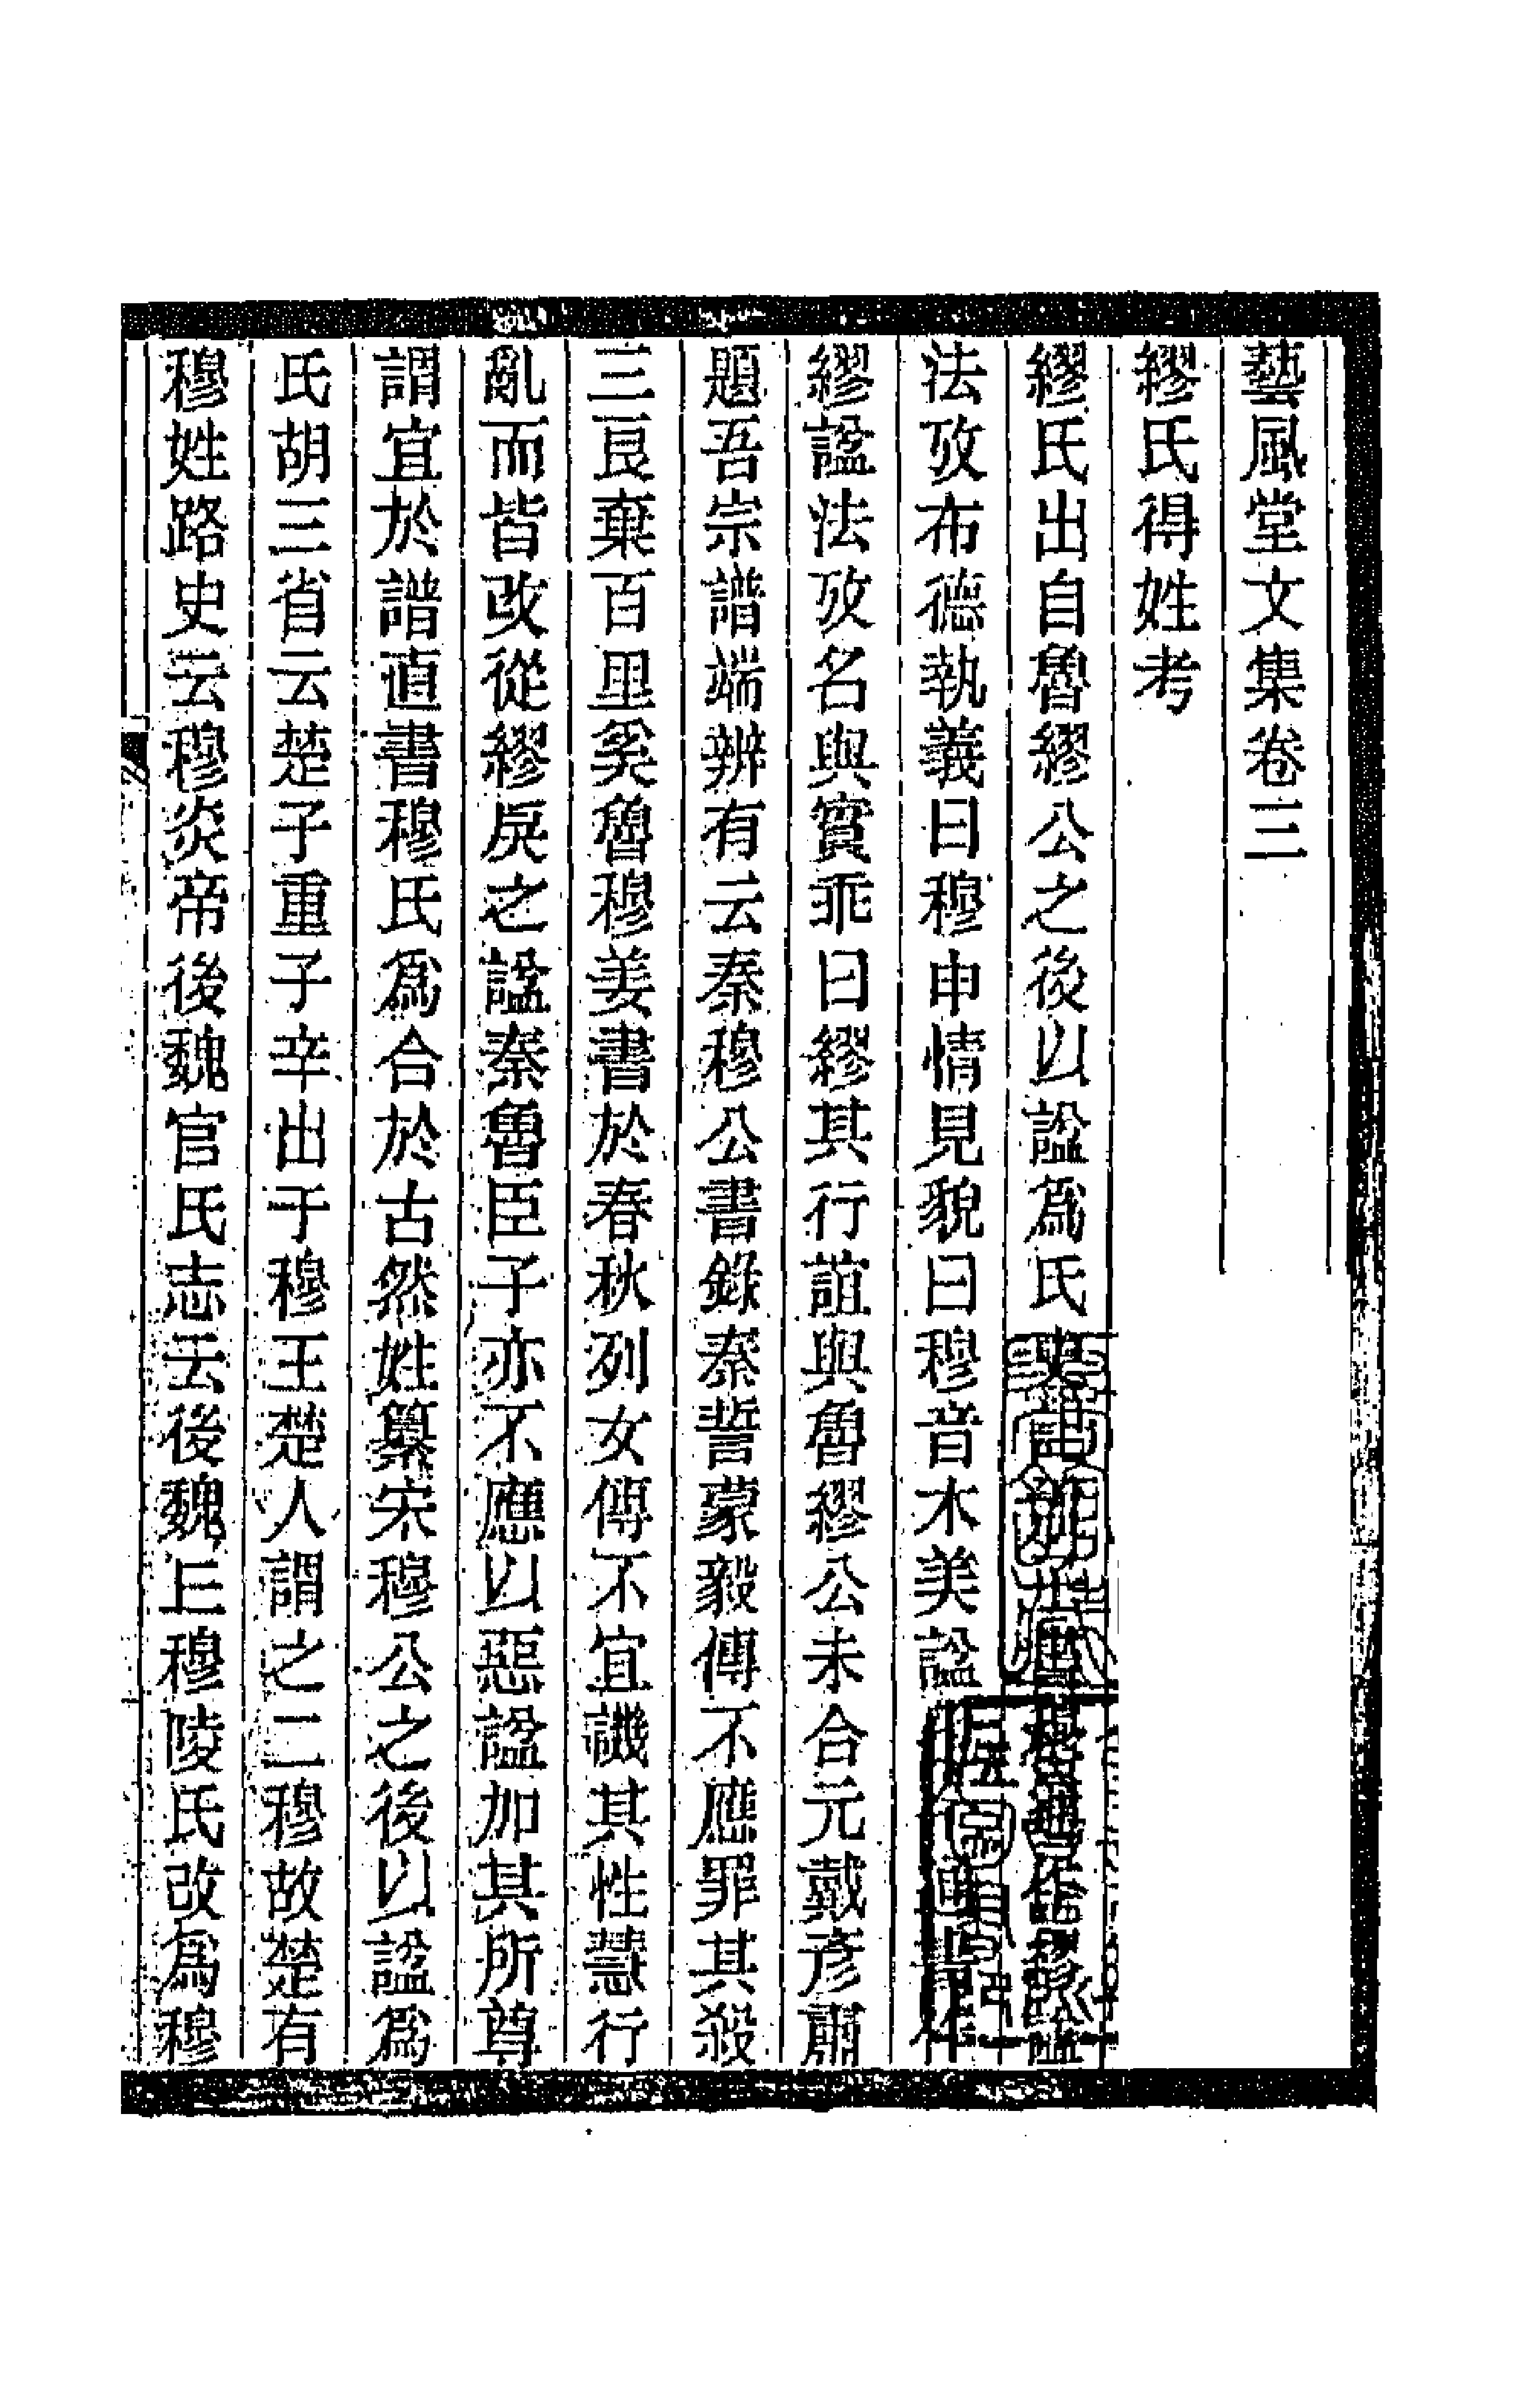 藝風堂文集卷三
繆氏得姓考
繆氏出自魯繆公之後以諡爲氏
法攷布德執義曰穆中情見貌曰穆音木美諡
繆諡法攷名與實乖曰繆其行誼與魯繆公未合元戴彥肅
題吾宗譜端辨有云秦穆公書錄秦誓蒙毅傳不應罪其殺
三良棄百里奚魯穆姜書於春秋列女傳不宜譏其性慧行
亂而皆改從繆戾之諡秦魯臣子亦不應以惡諡加其所尊
謂宜於譜直書穆氏爲合於古然姓纂宋穆公之後以諡爲
氏胡三省云楚子重子辛出于穆王楚人謂之二穆故楚有
穆姓路史云穆炎帝後魏官氏志云後魏㠪穆陵氏改爲穆